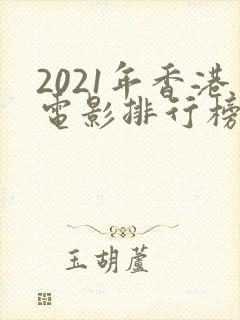 2021年香港
電影排行榜
玉胡蘆